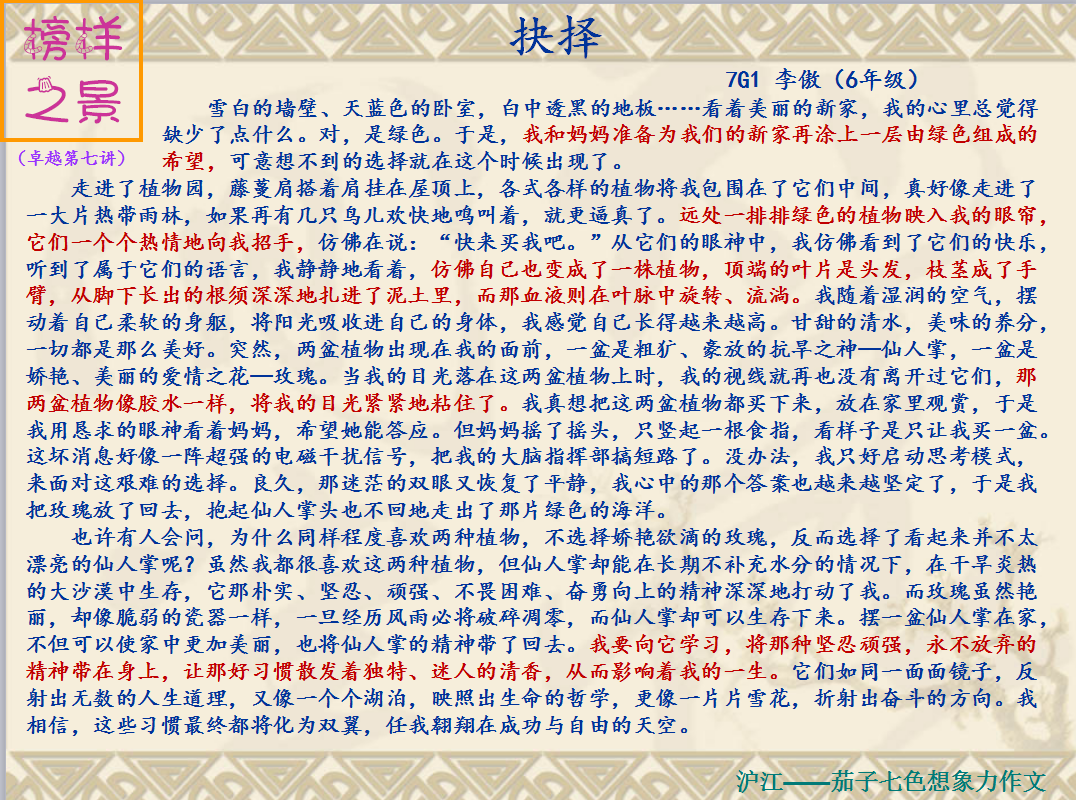 榜样
之景
抉择
7G1 李傲（6年级）
（卓越第七讲）
雪白的墙壁、天蓝色的卧室，白中透黑的地板……看着美丽的新家，我的心里总觉得
缺少了点什么。对，是绿色。于是，我和妈妈准备为我们的新家再涂上一层由绿色组成的
希望，可意想不到的选择就在这个时候出现了。
走进了植物园，藤蔓肩搭着肩挂在屋顶上，各式各样的植物将我包围在了它们中间，真好像走进了
一大片热带雨林，如果再有几只鸟儿欢快地鸣叫着，就更逼真了。远处一排排绿色的植物映入我的眼帘，
它们一个个热情地向我招手，仿佛在说：“快来买我吧。”从它们的眼神中，我仿佛看到了它们的快乐，
听到了属于它们的语言，我静静地看着，仿佛自己也变成了一株植物，顶端的叶片是头发，枝茎成了手
臂，从脚下长出的根须深深地扎进了泥土里，而那血液则在叶脉中旋转、流淌。我随着湿润的空气，摆
动着自己柔软的身躯，将阳光吸收进自己的身体，我感觉自己长得越来越高。甘甜的清水，美味的养分，
一切都是那么美好。突然，两盆植物出现在我的面前，一盆是粗犷、豪放的抗旱之神—仙人掌，一盆是
娇艳、美丽的爱情之花—玫瑰。当我的目光落在这两盆植物上时，我的视线就再也没有离开过它们，那
两盆植物像胶水一样，将我的目光紧紧地粘住了。我真想把这两盆植物都买下来，放在家里观赏，于是
我用恳求的眼神看着妈妈，希望她能答应。但妈妈摇了摇头，只竖起一根食指，看样子是只让我买一盆。
这坏消息好像一阵超强的电磁干扰信号，把我的大脑指挥部搞短路了。没办法，我只好启动思考模式，
来面对这艰难的选择。良久，那迷茫的双眼又恢复了平静，我心中的那个答案也越来越坚定了，于是我
把玫瑰放了回去，抱起仙人掌头也不回地走出了那片绿色的海洋。
也许有人会问，为什么同样程度喜欢两种植物，不选择娇艳欲滴的玫瑰，反而选择了看起来并不太
漂亮的仙人掌呢？虽然我都很喜欢这两种植物，但仙人掌却能在长期不补充水分的情况下，在干旱炎热
的大沙漠中生存，它那朴实、坚忍、顽强、不畏困难、奋勇向上的精神深深地打动了我。而玫瑰虽然艳
丽，却像脆弱的瓷器一样，一旦经历风雨必将破碎凋零，而仙人掌却可以生存下来。摆一盆仙人掌在家，
不但可以使家中更加美丽，也将仙人掌的精神带了回去。我要向它学习，将那种坚忍顽强，永不放弃的
精神带在身上，让那好习惯散发着独特、迷人的清香，从而影响着我的一生。它们如同一面面镜子，反
射出无数的人生道理，又像一个个湖泊，映照出生命的哲学，更像一片片雪花，折射出奋斗的方向。我
相信，这些习惯最终都将化为双翼，任我翱翔在成功与自由的天空。
沪江——茄子七色想象力作文